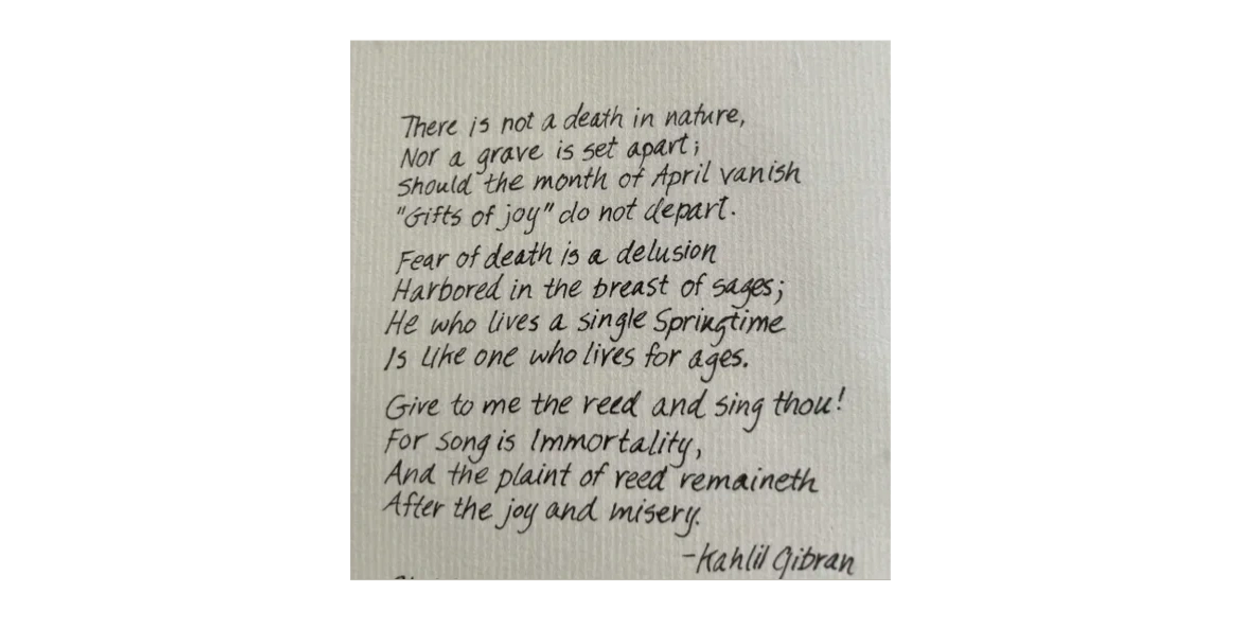 There is not a death in nature,
Nor a grave is set apart;
Should the month of April vanish
"Gifts of joy" do not depart.
Fear of death is a delusion
Harbored in the breast of sages;
He who lives a single Springtime
Is like one who lives for ages.
Give to me the reed and sing thou!
For song is Immortality,
And the plaint of reed remaineth
After the joy and misery.
-Kahlil Gibran